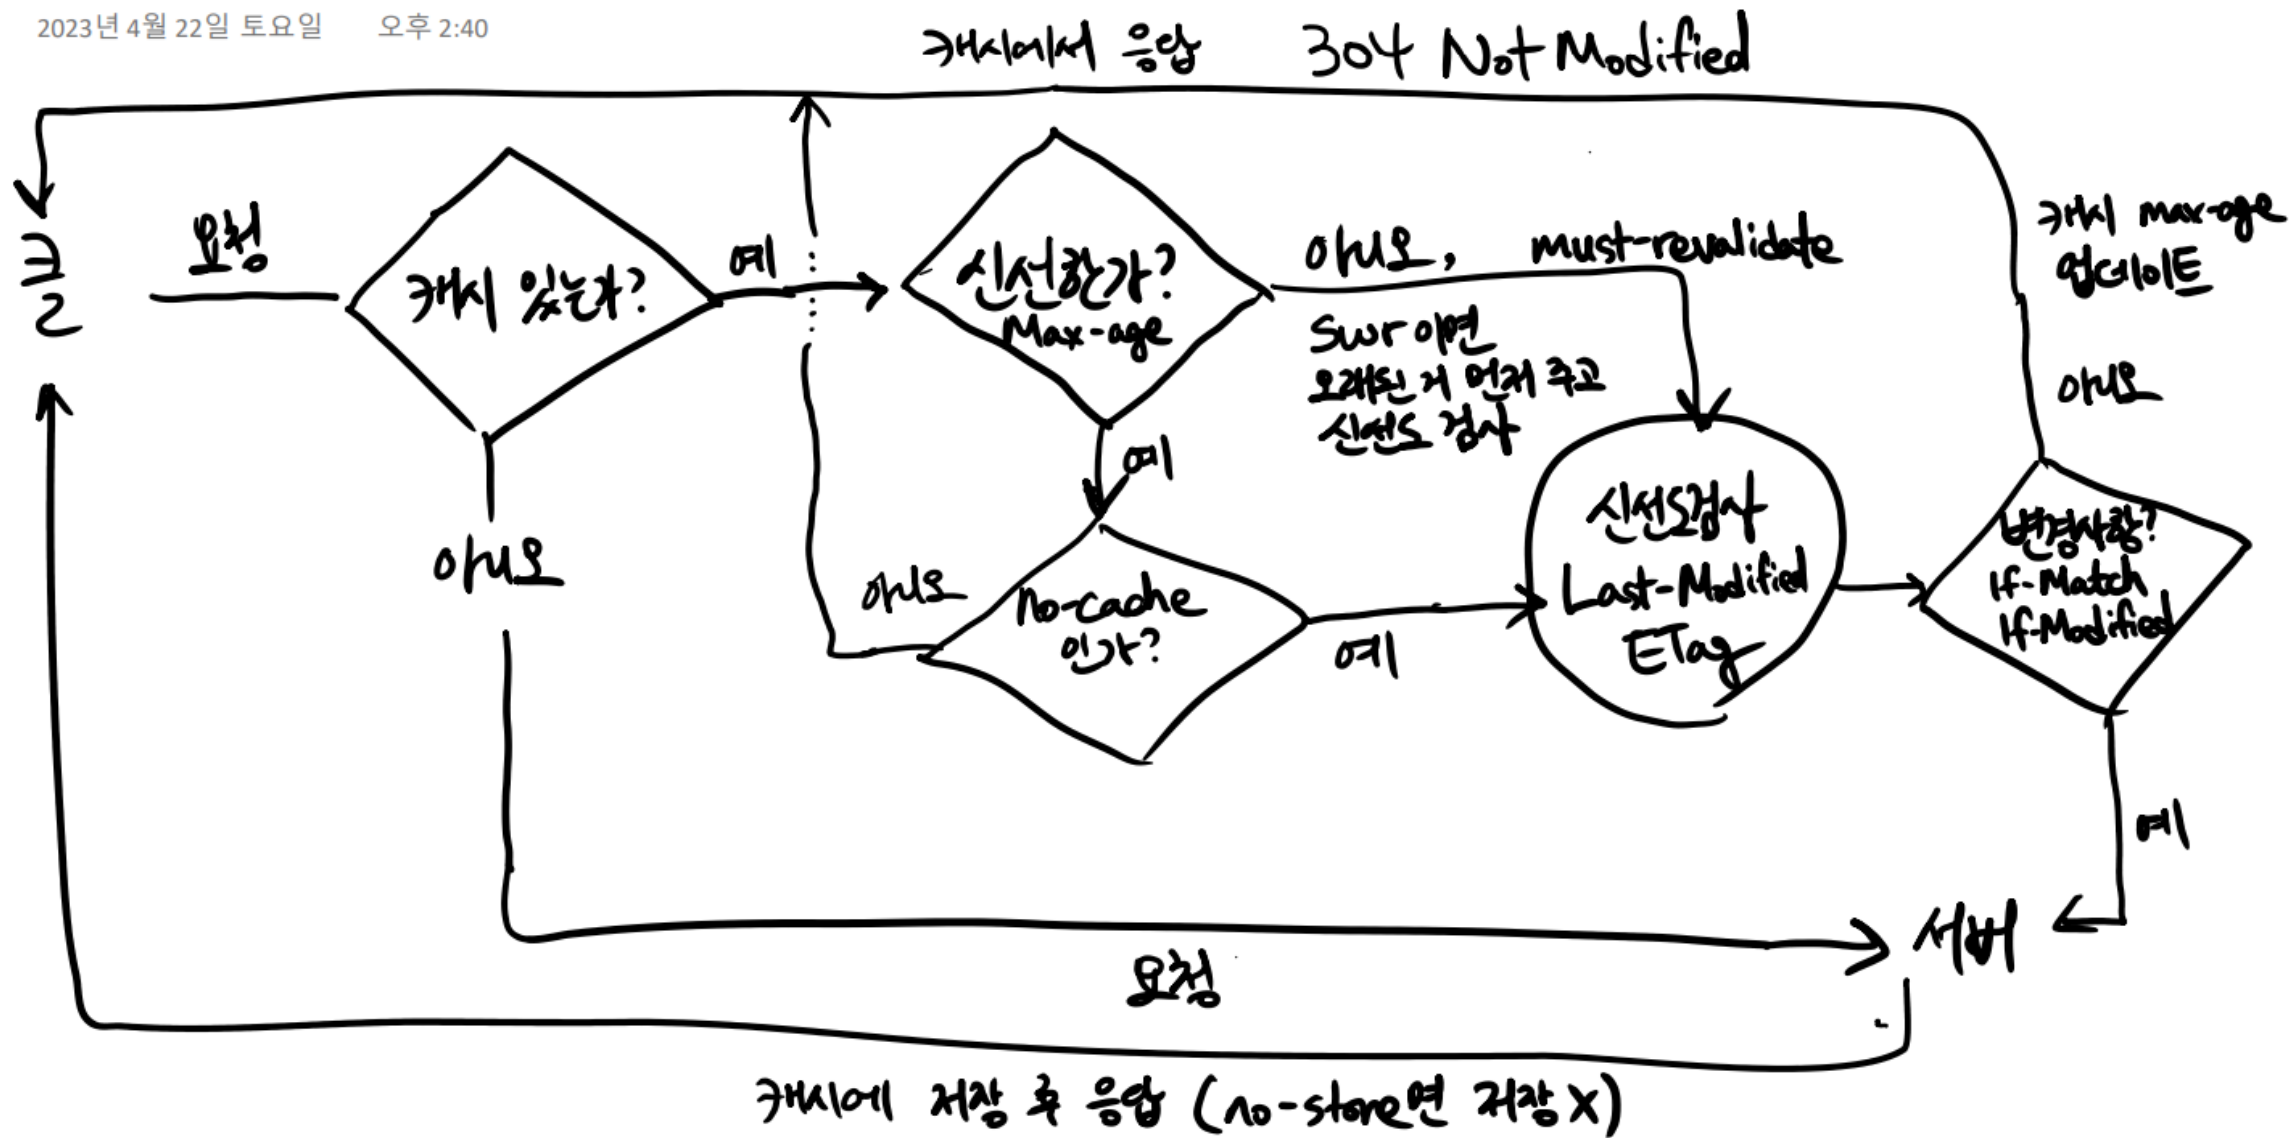 2023년 4월 22일 토요일 오후 2:40
캐시에서 응답 304 Not Modified
클
요청
캐시 있는가?
예
신선한가?
Max-age
아니오, must-revalidate
swr 이면
오래된 거 먼저 주고
신선도 검사
캐시 max-age
업데이트
아니오
예
아니오
no-cache
인가?
예
신선도검사
Last-Modified
ETag
변경사항?
If-Match
If-Modified
아니오
예
서버
요청
캐시에 저장 후 응답 (no-store면 저장X)